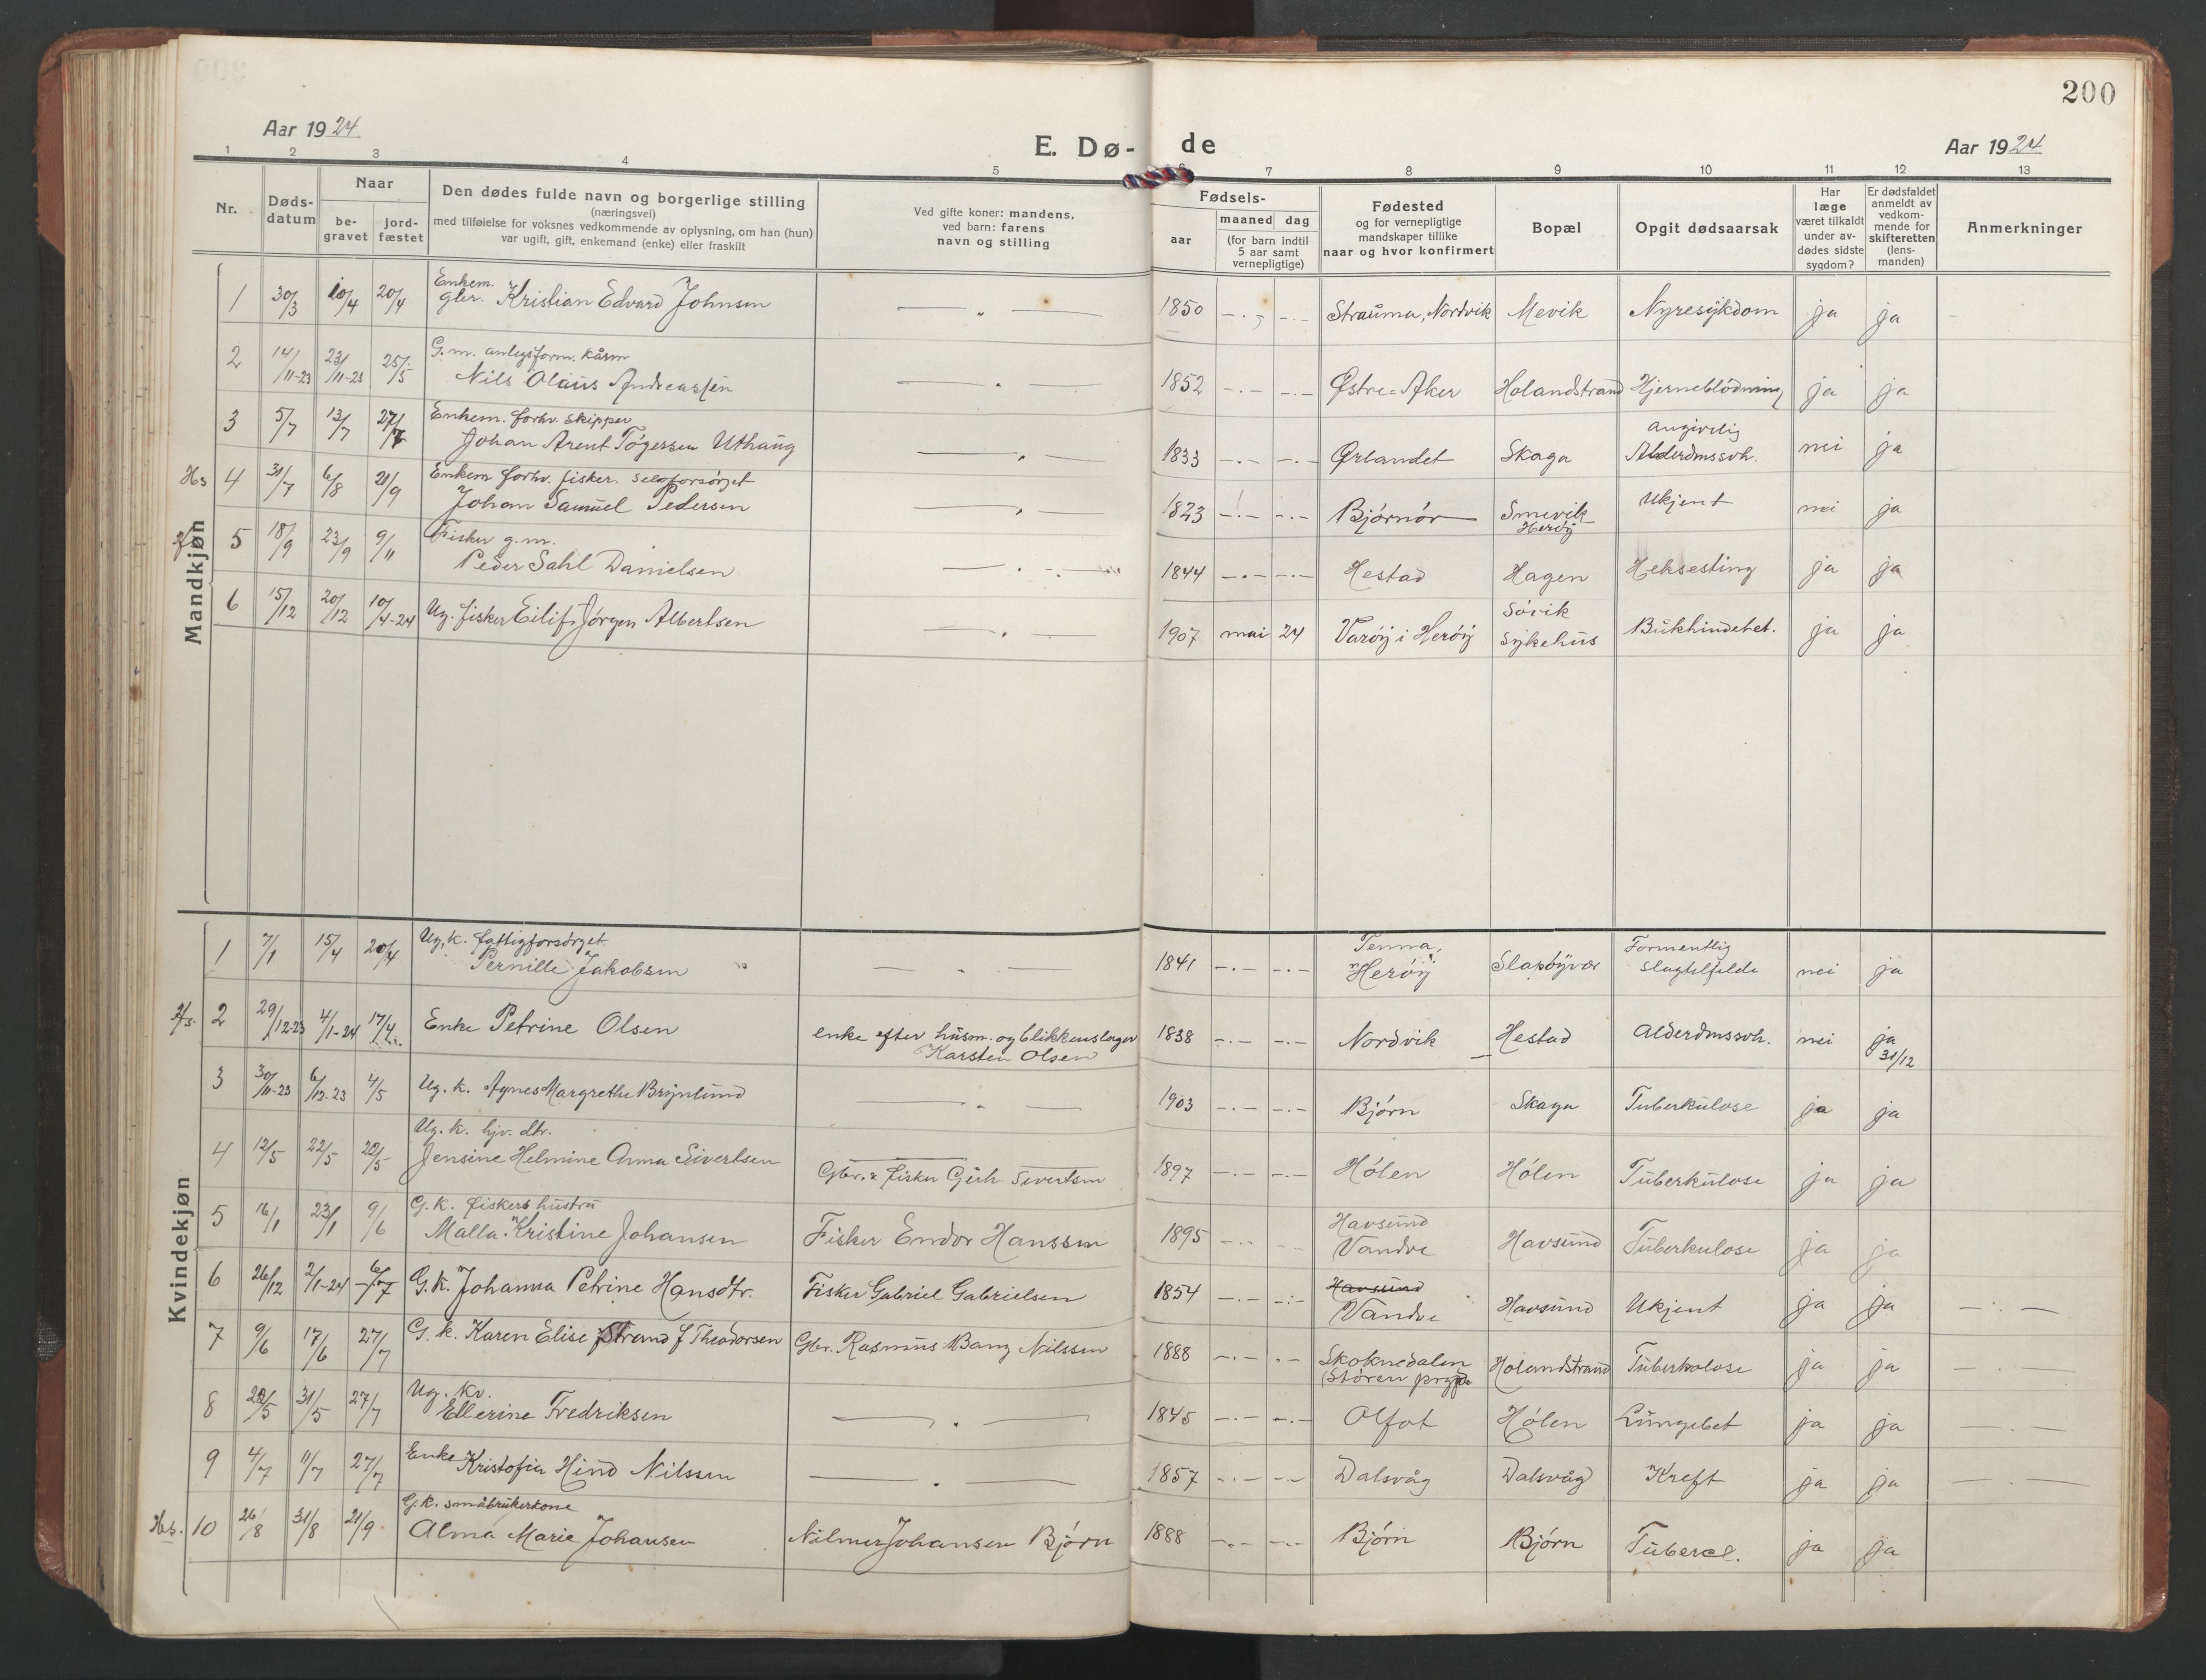 200
Aar 1924
E. Dø-
de
Aar 1924
1 2 3 4 5 6 7 8 9 10 11 12 13
Nr.
Døds-
datum
Naar
be-
gravet
jord-
fæstet
Den dødes fulde navn og borgerlige stilling
(næringsvei)
med tilføielse for voksnes vedkommende av oplysning, om han (hun)
var ugift, gift, enkemand (enke) eller fraskilt
Ved gifte koner: mandens,
ved barn: farens
navn og stilling
Fødsels-
aar
maaned dag
(for barn indtil
5 aar samt
vernepligtige)
Fødested
og for vernepligtige
mandskaper tillike
naar og hvor konfirmert
Bopæl
Opgit dødsaarsak
Har
læge
været tilkaldt
under av-
dødes sidste
sygdom?
Er dødsfaldet
anmeldt av
vedkom-
mende for
skifteretten
(lens-
manden)
Anmerkninger
Mandkjøn
Enkem.
1 30/3 10/4 20/4 gbr. Kristian Edvard Johnsen — „ — 1850 Strauma, Nordvik Mevik Nyresykdom ja ja
G. m. anlegsform. kåsm
2 14/11-23 23/11-23 25/5 Nils Olaus Andreassen — „ — 1852 Østre-Aker Holandstrand Hjerneblödning ja ja
Enkem. forhv. skipper angivelig
3 5/7 13/7 27/7 Johan Arent Tøgersen Uthaug — „ — 1833 Ørlandet Skaga Alderdmssvh. nei ja
Enkem forhv. fisker. selvforsørget
Hs 4 31/7 6/8 21/9 Johan Samuel Pedersen — „ — 1823 Bjørnør Smevik Ukjent nei ja
Herøy
Fisker g. m.
5 18/9 23/9 9/11 Peder Sahl Danielsen — „ — 1844 Hestad Hagen Heksesting ja ja
Søvik
6 15/12 20/12 10/4-24 Ug. fisker Eilif Jørgen Albertsen — „ — 1907 mai 24 Varøy i Herøy sykehus Bukhindebet. ja ja
Kvindekjøn
Ug. k. fattigforsørget Tenna, Formentlig
1 7/1 15/4 20/4 Pernille Jakobsen — „ — 1841 Herøy Slapøyvær slagtilfelde nei ja
Hs. 2 29/12-23 4/1-24 17/4 Enke Petrine Olsen enke efter husm. og blikkenslager 1838 Nordvik Hestad Alderdmssvh. nei ja
Karsten Olsen 31/12
3 30/11-23 6/12-23 4/5 Ug. k. Agnes Margrethe Brynlund — „ — 1903 Bjørn Skaga Tuberkulose ja ja
Ug. k. hjv. dtr.
4 12/5 22/5 22/5 Jensine Helmine Anna Sivertsen Gbr. & fisker Gerh. Sivertsen 1897 Hølen Hølen Tuberkulose ja ja
G. k. fiskers hustru Havsund
5 16/1 23/1 9/6 Malla Kristine Johansen Fisker Endor Hanssen 1895 Vandve Havsund Tuberkulose ja ja
Havsund
6 26/12 2/1-24 6/7 G. k. Johanna Petrine Hansdtr. Fisker Gabriel Gabrielsen 1854 Vandve Havsund Ukjent ja ja
7 9/6 17/6 27/7 G. k. Karen Elise Strand f Theodorsen Gbr. Rasmus Bang Nilssen 1888 Skoknedalen Holandstrand Tuberkolose ja ja
Støren prgjd
Ug. kv.
8 28/5 31/5 27/7 Ellerine Fredriksen — „ — 1845 Olfot Hølen Lungebet ja ja
9 4/7 11/7 27/7 Enke Kristofia Hind Nilssen — „ — 1857 Dalsvåg Dalsvåg Kreft ja ja
G. k. småbrukerkone
Hs. 10 26/8 31/8 21/9 Alma Marie Johansen Nilmer Johansen Bjørn 1888 Bjørn Bjørn Tubercl. ja ja